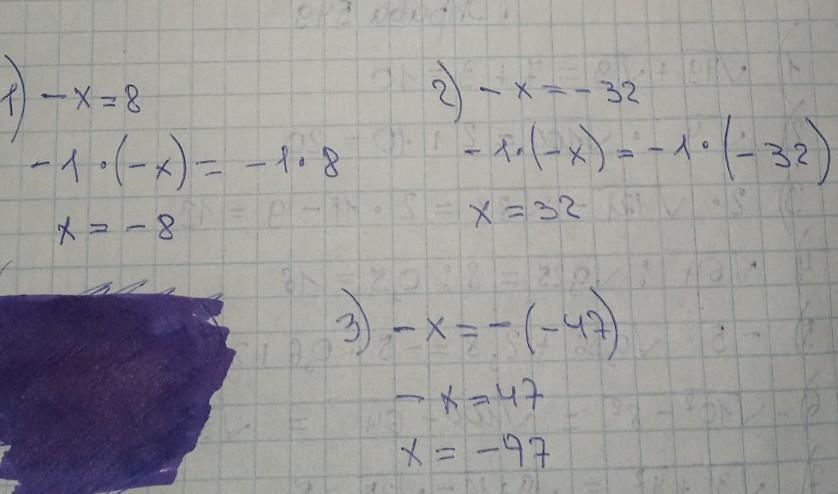 1) -x=8
-1·(-x)= -1·8
x = -8
2) -x=-32
-1·(-x)=-1·(-32)
x=32
3) -x=-(-47)
-x=47
x=-47